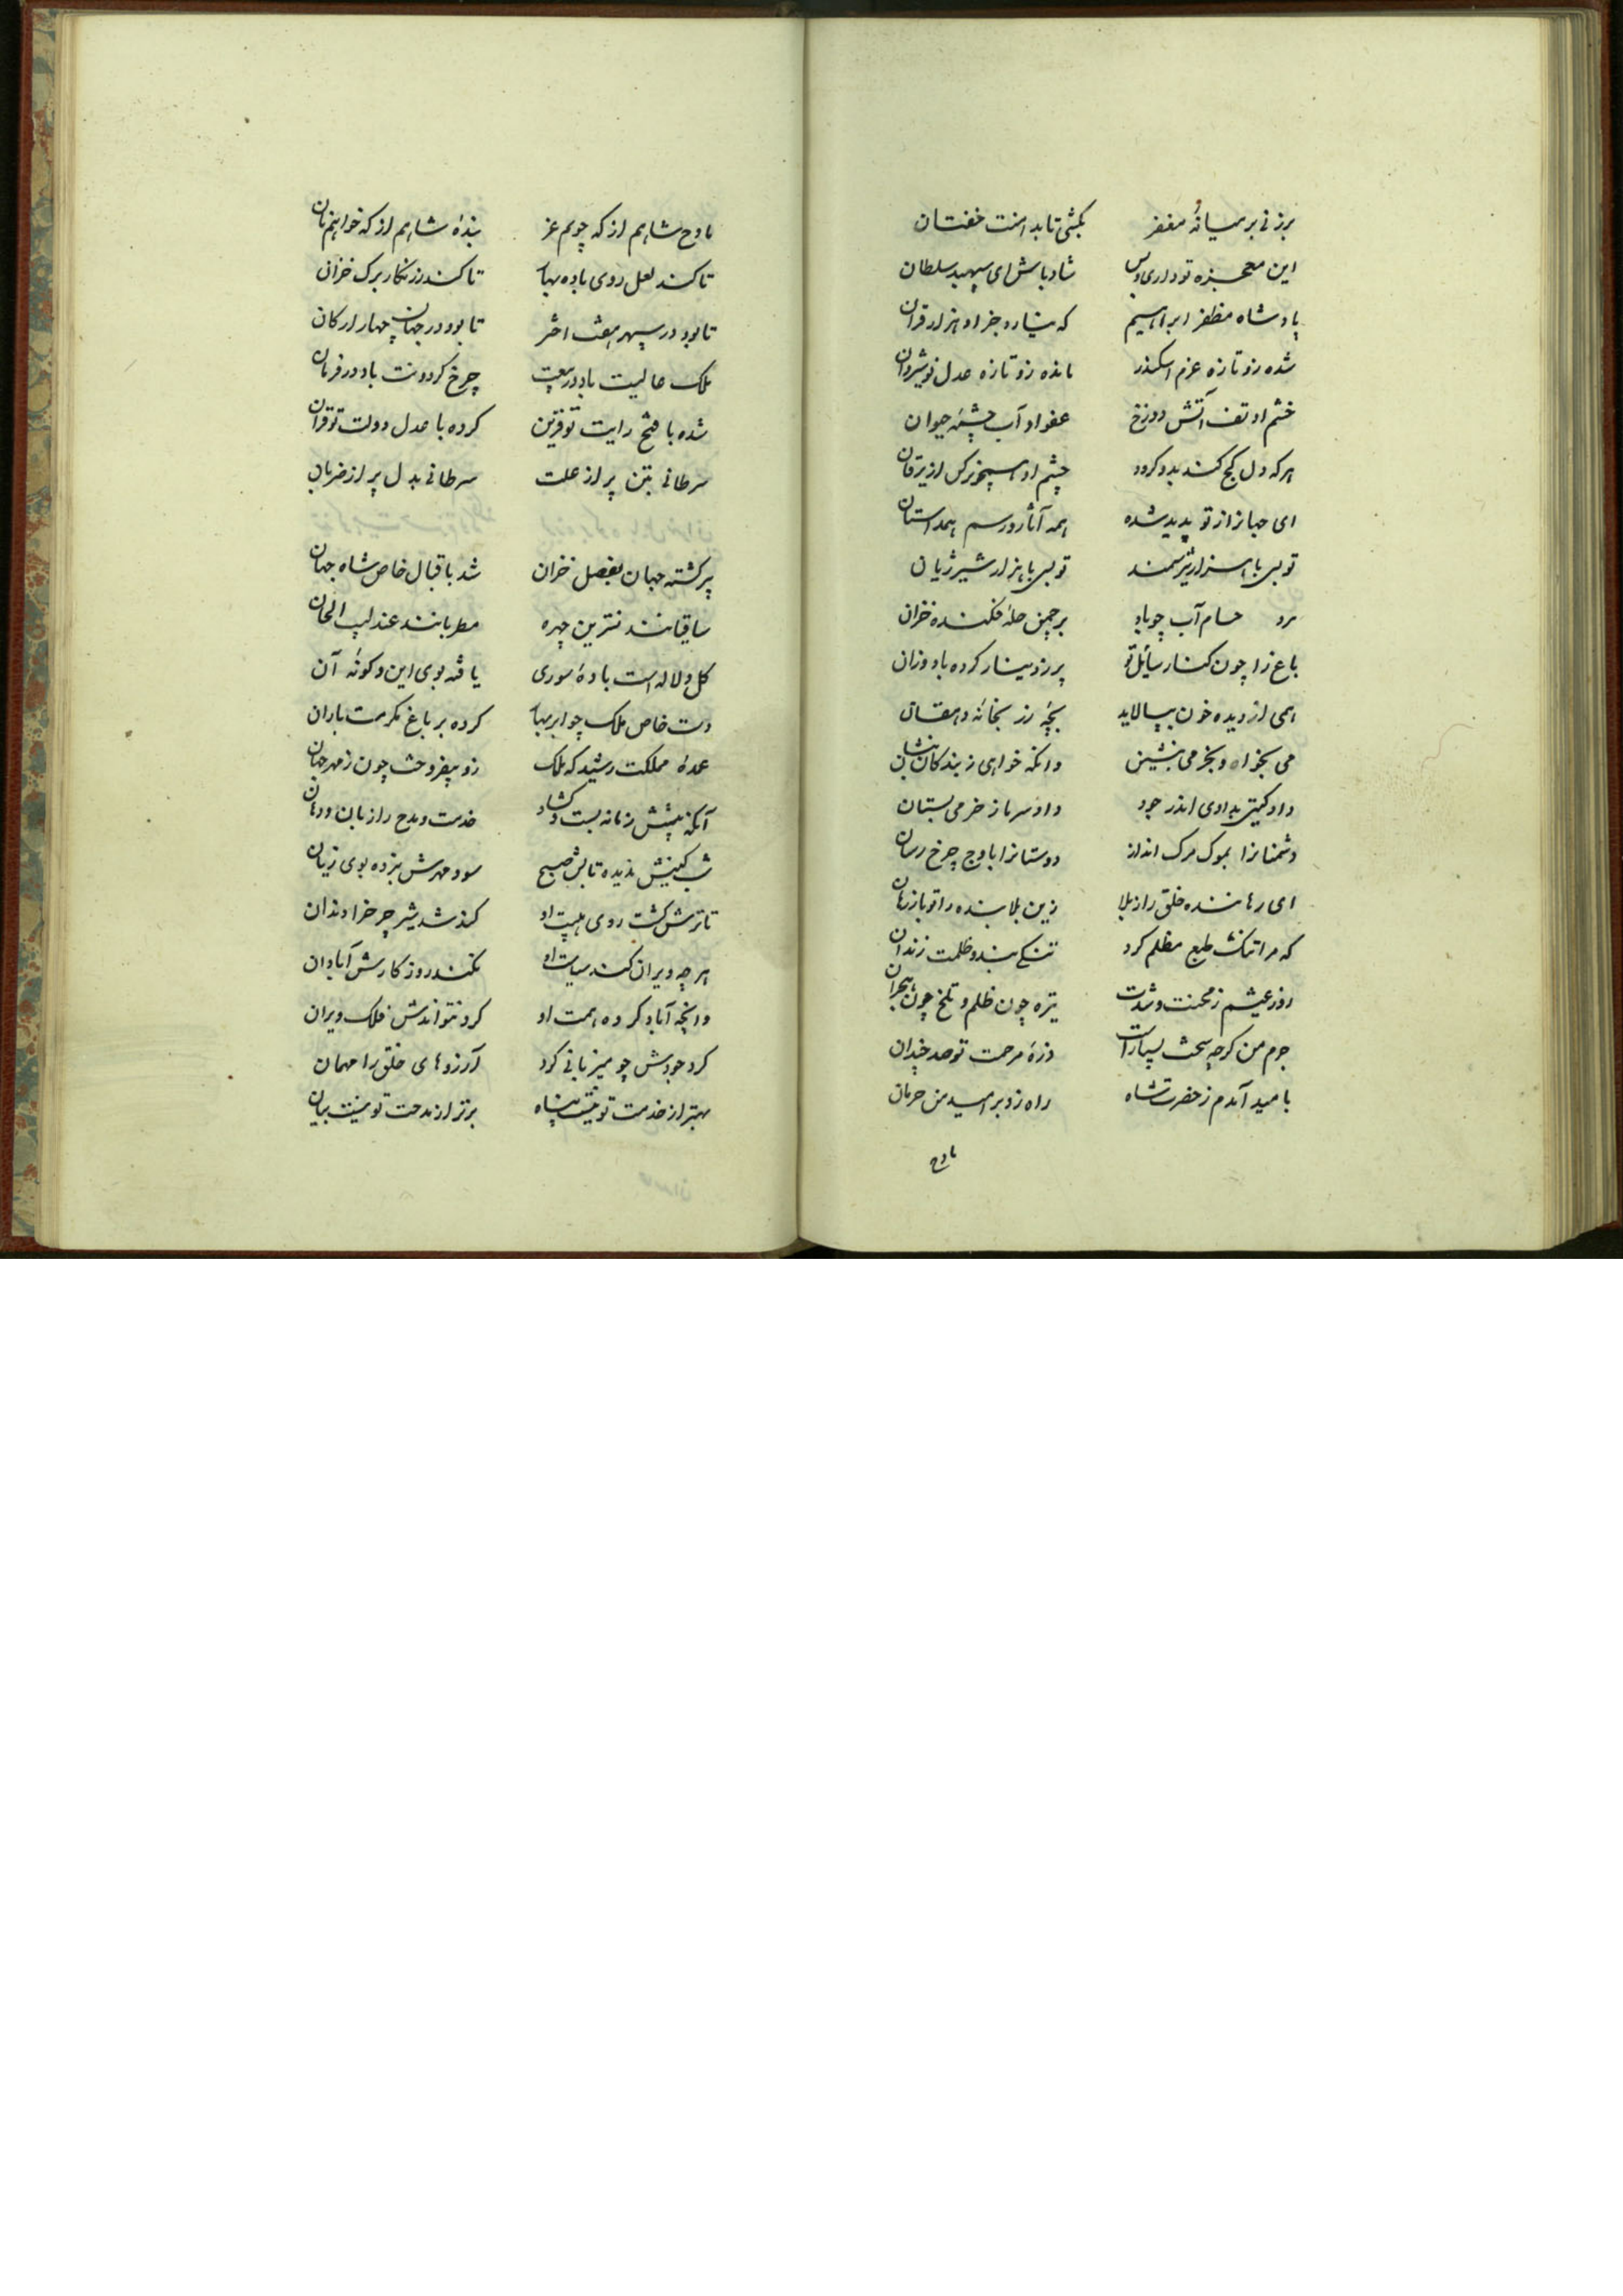 بزنی بر میانهٔ مغفر بکشی تا بدامنت خفتان
این معجزه تو داری و بس شاد باش ای سپهبد سلطان
پادشاه مظفر ابراهیم که نیارد جز او هزار قران
شده زو تازه عزم اسکندر مانده زو تازه عدل نوشیروان
خشم او تف آتش دوزخ عفو او آب چشمهٔ حیوان
هرکه دل کج کند بدو کردد چشم او همچو نرکس از یرقان
ای جهانرا از تو پدید شده همه آثار رستم دستان
تو بسی با هزار تیر سمند تو بسی با هزار شیر ژیان
برد حسام آب چو باد بر چمن حله فکنده خزان
باغ را چون کنار سائل تو پر ز دینار کرده باد وزان
همی از دیده خون بپالاید بچهٔ رز بخانهٔ دهقان
می بخواه و بخرمی بنشین وانکه خواهی ز بندکان بنشان
داد کیتی بدادی اندر جود داد سرما ز خرمی بستان
دشمنانرا بموک مرک انداز دوستانرا باوج چرخ رسان
ای رهاننده خلق را ز بلا زین بلا بنده را تو باز رهان
که مرا تنک طبع مظلم کرد تنکی بند و ظلمت زندان
روز عیشم ز محنت و شدت تیره چون ظلم و تلخ چون هجران
جرم من کرچه سخت بسیارست ذرهٔ مرحمت تو صد چندان
بامید آمدم ز حضرت شاه راه زد بر امید من حرمان
مادح
مادح شاهم از که جویم عز بندهٔ شاهم از که خواهم نان
تا کند لعل روی باده بهار تا کند زر نکار برک خزان
تا بود در سپهر هفت اختر تا بود در جهان چهار ارکان
ملک عالیت باد در بیعت چرخ کردونت باد در فرمان
شده با فتح رایت تو قرین کرده با عدل دولت تو قران
سرطانی بتن پر از علت سرطانی بدل پر از ضربان
پر کشته جهان بفصل خزان شد باقبال خاص شاه جهان
ساقیانند نسترین چهره مطربانند عندلیب الحان
کل و لاله است بادهٔ سوری یافته بوی این و کونهٔ آن
دست خاص ملک چو ابر بهار کرده بر باغ مکرمت باران
عمدهٔ مملکت رشید که ملک زو بیفروخت چون ز مهر جهان
آنکه پیشش زمانه بست و کشاد خدمت و مدح را زبان و دهان
شب کینش ندیده تابش صبح سود مهرش نبرده بوی زیان
تا ترش کشت روی هیبت او کند شد شیر چرخ را دندان
هرچه ویران کند سیاست او نکند روزکارش آبادان
وانچه آباد کرده همت او کرد نتواندش فلک ویران
کرد جودش چو میزبانی کرد آرزوهای خلق را مهمان
بهتر از خدمت تو نیست پناه برتر از مدحت تو نیست بیان